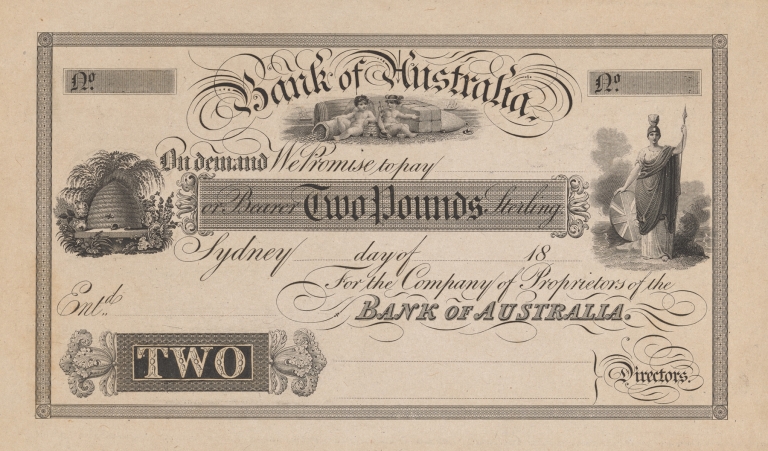 Nº Bank of Australia. Nº
On demand We Promise to pay
or Bearer Two Pounds Sterling.
Sydney day of 18
For the Company of Proprietors of the
Entd.
BANK OF AUSTRALIA.
TWO
Directors.